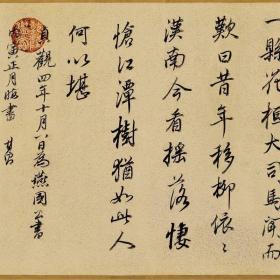 一縣花桓大司馬聞而
歎曰昔年移柳依〻
漢南今看搖落悽
愴江潭樹猶如此人
何以堪
貞觀四年十月八日為燕國公書
寅正月臨書